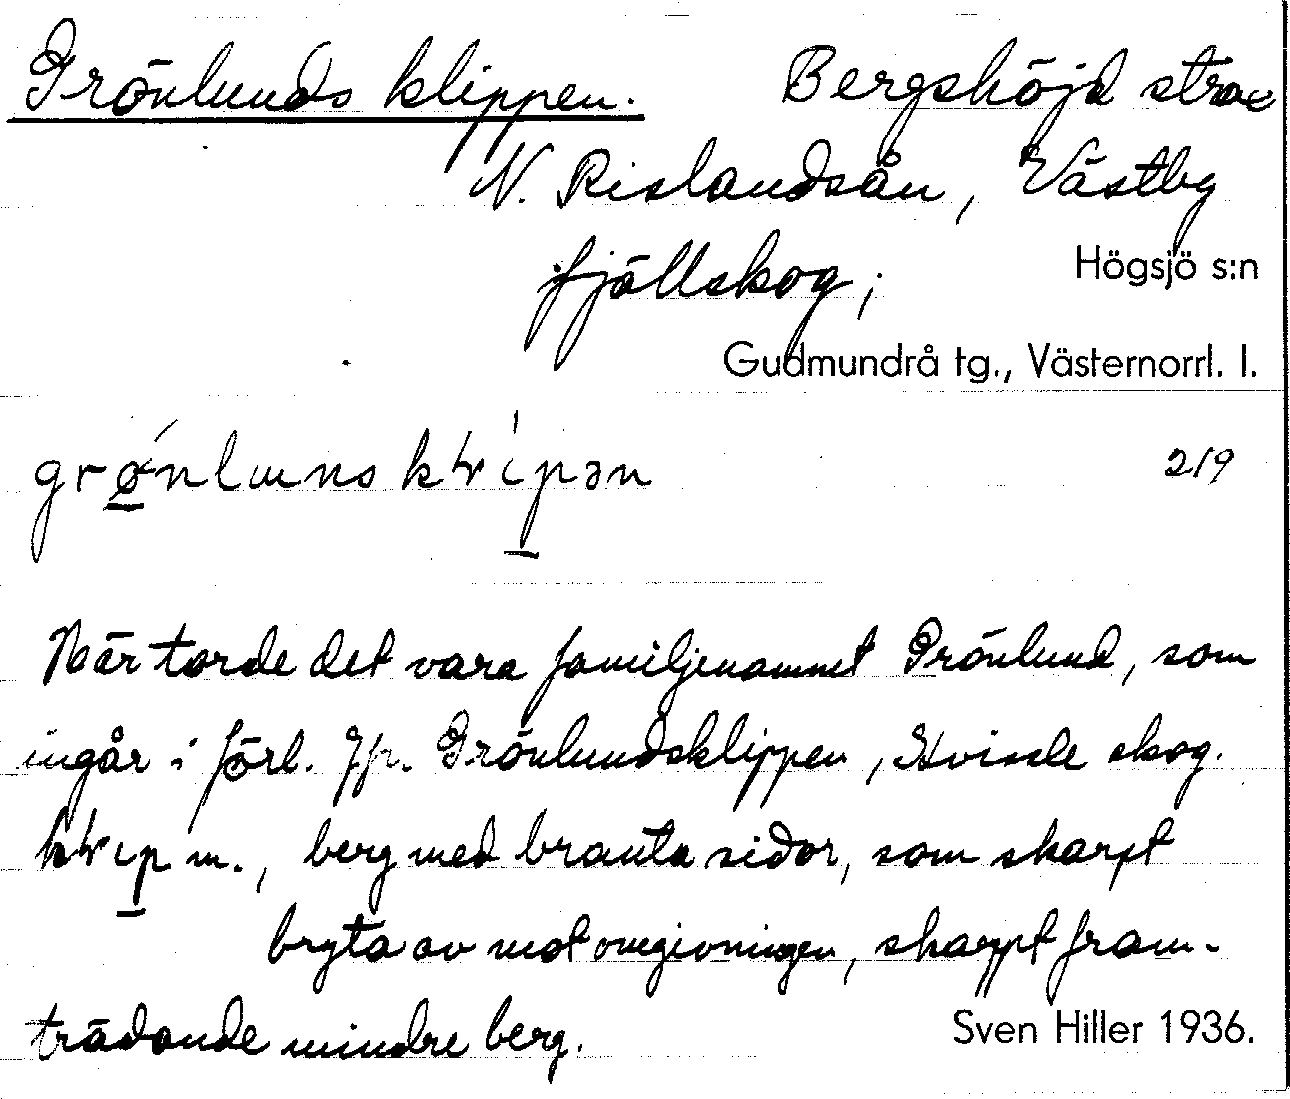 Grönlunds klippen. Bergshöjd strax
N. Rislandsån, Västby
fjällskog;
Högsjö s:n
Gudmundrå tg., Västernorrl. l.
219
Här torde det vara familjenamnet Grönlund, som
ingår i förl. Jfr. Grönlundsklippen, skog.
m., berg med branta sidor, som skarpt
bryta av mot omgivningen, skarpt fram-
trädande mindre berg.
Sven Hiller 1936.